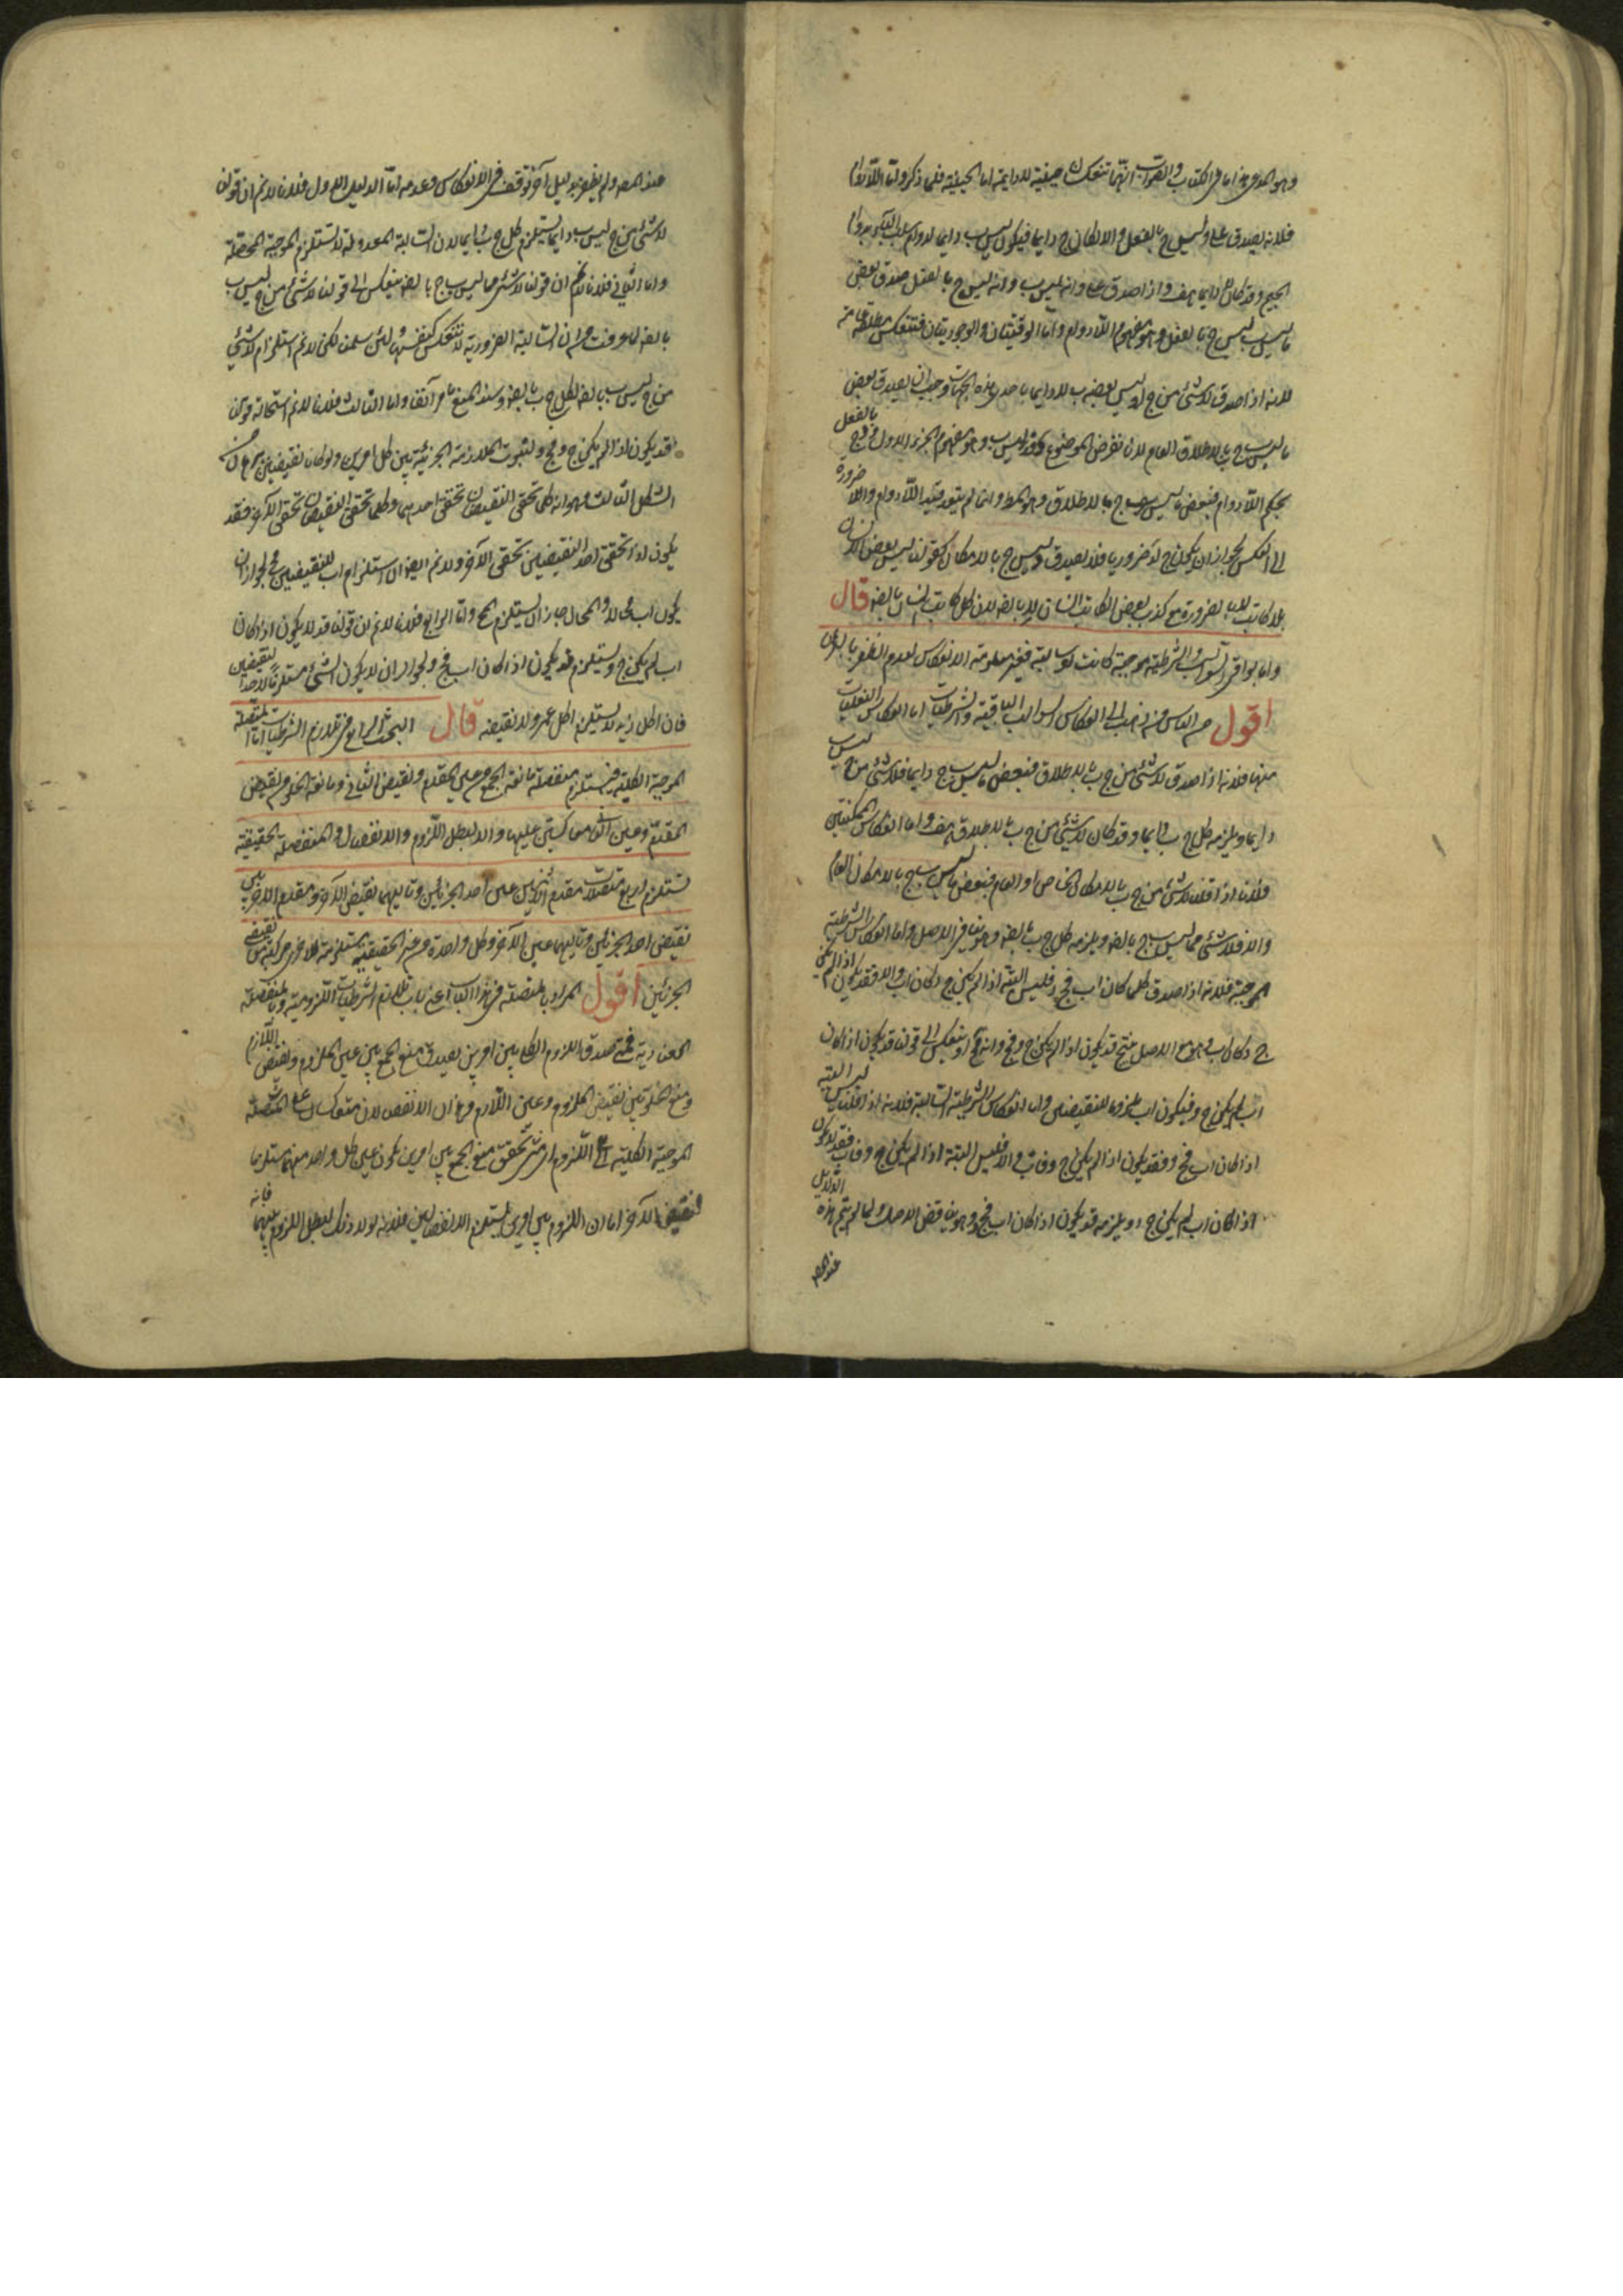 وهو المدعى هذا ما في الكتاب والصواب انهما تنعكسان حينية لا دايمة اما الحينية فلما ذكر واما اللادوام
فلانه يصدق على د ليس ج بالفعل والا لكان ج دايما فيكون ليس ب دايما لدوام سلب الباء بدوام
الجيم وقد كان لا دايما هف واذا صدق على د انه ليس ب وانه ليس ج بالفعل صدق بعض
ما ليس ب ليس ج بالفعل وهو مفهوم اللادوام واما الوقتيتان والوجوديتان فتنعكس مطلقة عامة
لانه اذا صدق لا شئ من ج او ليس بعضه ب لا دايما باحدى هذه الجهات وجب ان يصدق بعض
ما ليس ب ج بالاطلاق العام لانا نفرض الموضوع د فد ليس ب وهو مفهوم الجزء الاول ود ج بالفعل
بحكم اللادوام فبعض ما ليس ب ج بالاطلاق وهو المط وانما لم يتعد قيد اللادوام واللا ضرورة
الى العكس لجواز ان يكون ج لد ضروريا فلا يصدق د ليس ج بالامكان كقولنا ليس بعض الانسان
بلا كاتب لا بالضرورة مع كذب بعض الكاتب انسان لا بالضه لان كل كاتب انسان بالضه قال
واما بواقي السوالب والشرطية موجبة كانت او سالبة فغير معلومة الانعكاس لعدم الظفر بالبرهان
اقول من الناس من ذهب الى انعكاس السوالب الباقية والشرطيات اما انعكاس الفعليات
منها فلانه اذا صدق لا شئ من ج ب بالاطلاق فبعض ما ليس ب ج دايما فلا شئ من ج ليس ب
دايما ويلزمه كل ج ب دايما وقد كان لا شئ من ج ب بالاطلاق هف واما انعكاس الممكنتين
فلانا اذا قلنا لا شئ من ج ب بالامكان الخاص او العام فبعض ما ليس ب ج بالامكان العام
والا فلا شئ مما ليس ب ج بالضه ويلزمه كل ج ب بالضه وهو ينافي الاصل واما انعكاس الشرطية
الموجبة فلانه اذا صدق كلما كان اب فج د فليس البتة اذا لم يكن ج د كان اب والا فقد يكون اذا لم يكن
ج د كان اب وهو مع الاصل ينتج قد يكون اذا لم يكن ج د فج د وانه مح او ينعكس الى قولنا قد يكون اذا كان
اب لم يكن ج د فيكون اب ملزوما للنقيضين واما انعكاس الشرطية السالبة فلانه اذا قلنا ليس البتة
اذا كان اب فج د فقد يكون اذا لم يكن ج د فاب والا فليس البتة اذا لم يكن ج د فاب فقد لا يكون
اذا كان اب لم يكن ج د ويلزمه قد يكون اذا كان اب فج د وهو يناقض الاصل ولما لم يتم هذه الدلايل
عند المص
عند المص ولم يظفر بدليل آخر توقف في الانعكاس وعدمه اما الدليل الاول فلانا لا نم ان قولنا
لا شئ من ج ليس ب دايما يستلزم كل ج ب دايما لان السالبة المعدولة لا تستلزم الموجبة المحصلة
واما الثاني فلانا لا نم ان قولنا لا شئ مما ليس ب ج بالضه ينعكس الى قولنا لا شئ من ج ليس ب
بالضه لما عرفت من ان السالبة الضرورية لا تنعكس كنفسها ولئن سلمنا لكن لا نم استلزام لا شئ
من ج ليس ب بالضه لكل ج ب بالضه وسند المنع ما مر آنفا واما الثالث فلانا لا نم استحالة قولنا
قد يكون اذا لم يكن ج د فج د لثبوت الملازمة الجزئية بين كل امرين ولو كانا نقيضين ببرهان من
الشكل الثالث وهو انه كلما تحقق النقيضان تحقق احدهما وكلما تحقق النقيضان تحقق الآخر فقد
يكون اذا تحقق احد النقيضين تحقق الآخر ولا نم ايضا ان استلزام اب للنقيضين مح لجواز ان
يكون اب محالا والمحال جاز ان يستلزم المح واما الرابع فلانا لا نم ان قولنا قد لا يكون اذا كان
اب لم يكن ج د يستلزم قد يكون اذا كان اب فج د لجواز ان لا يكون الشئ مستلزما لاحد النقيضين
فان اكل زيد لا يستلزم اكل عمرو ولا نقيضه قال البحث الرابع في تلازم الشرطيات اما المتصلة
الموجبة الكلية فيستلزم منفصلة مانعة الجمع من عين المقدم ونقيض التالي ومانعة الخلو من نقيض
المقدم وعين التالي متعاكستين عليها والا لبطل اللزوم والانفصال والمنفصلة الحقيقية
تستلزم اربع متصلات مقدم اثنتين عين احد الجزئين وتاليهما نقيض الآخر ومقدم الاخريين
نقيض احد الجزئين وتاليهما عين الآخر وكل واحدة من غير الحقيقية مستلزمة للاخرى مركبة من نقيضي
الجزئين اقول المراد بالمتصلة في هذا الباب اعني باب تلازم الشرطيات اللزومية وبالمنفصلة
العنادية فمتى صدق اللزوم الكلي بين امرين يصدق منع الجمع بين عين الملزوم ونقيض اللازم
ومنع الخلو بين نقيض الملزوم وعين اللازم وهذان الانفصالان متعاكسان على المتصلة
الموجبة الكلية اي اللزوم متى تحقق منع الجمع بين امرين يكون عين كل واحد منهما مستلزما
لنقيض الآخر اما ان اللزوم بين امرين يستلزم الانفصالين فلانه لولا ذلك لبطل اللزوم بينهما فانه